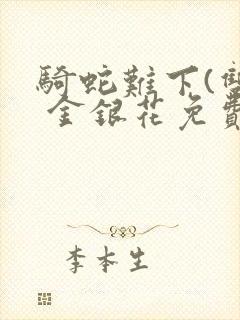 騎蛇難下(雙
金銀花免費
李本生